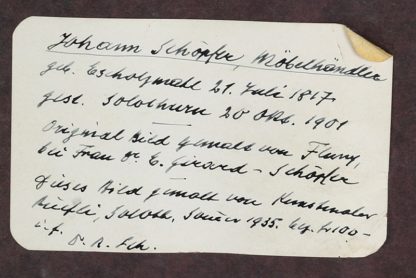 Johann Schöpfer, Möbelhändler
geb. Escholzmatt 21. Juli 1817
gest. Solothurn 20 Okt. 1901
Original Bild gemalt von Flury,
bei Frau Dr. E. Girard-Schöpfer
Dieses Bild gemalt von Kunstmaler
Soloth. 1935. fr 100-
Dr. A. Sch.